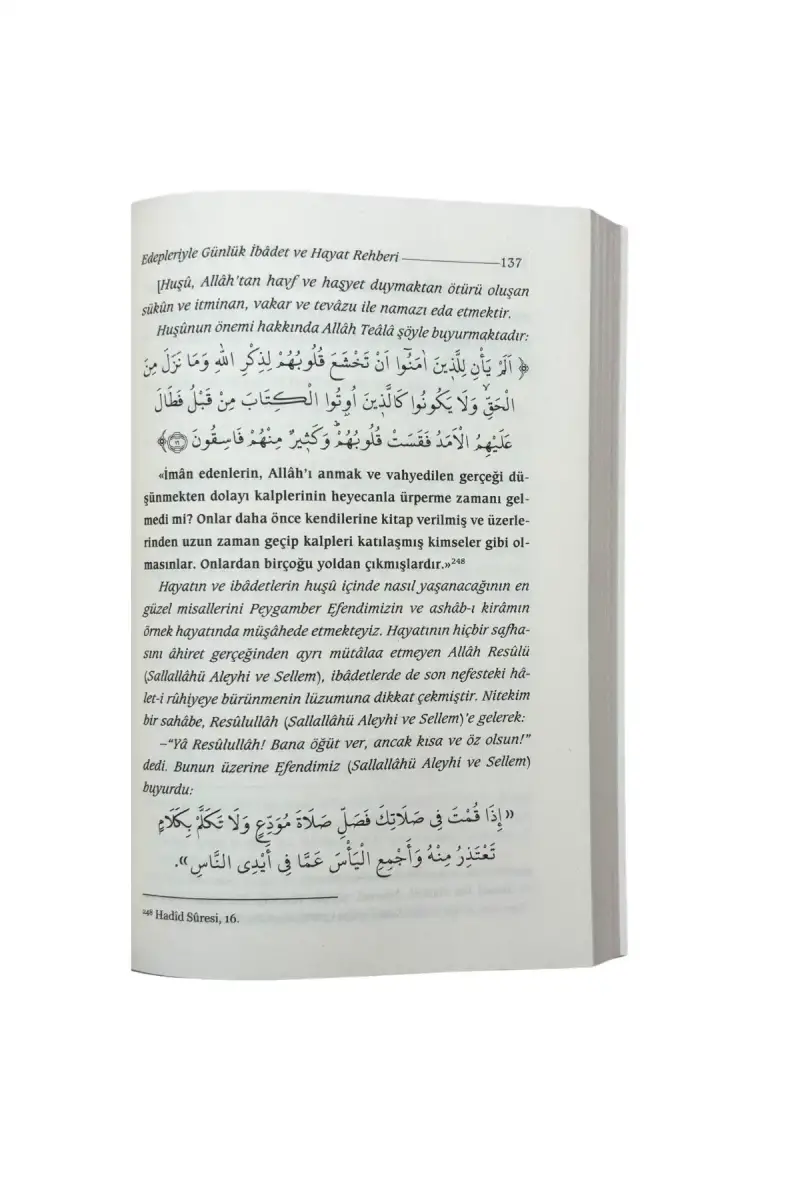 Edepleriyle Günlük İbâdet ve Hayat Rehberi 137
[Huşû, Allâh’tan havf ve haşyet duymaktan ötürü oluşan
sükûn ve itminan, vakar ve tevâzu ile namazı eda etmektir.
Huşûnun önemi hakkında Allâh Teâlâ şöyle buyurmaktadır:
﴿ اَلَمْ يَأْنِ لِلَّذ۪ينَ اٰمَنُٓوا اَنْ تَخْشَعَ قُلُوبُهُمْ لِذِكْرِ اللّٰهِ وَمَا نَزَلَ مِنَ
الْحَقِّۙ وَلَا يَكُونُوا كَالَّذ۪ينَ اُو۫تُوا الْكِتَابَ مِنْ قَبْلُ فَطَالَ
عَلَيْهِمُ الْاَمَدُ فَقَسَتْ قُلُوبُهُمْۜ وَكَث۪يرٌ مِنْهُمْ فَاسِقُونَ ﴿١٦﴾
«İmân edenlerin, Allâh’ı anmak ve vahyedilen gerçeği dü-
şünmekten dolayı kalplerinin heyecanla ürperme zamanı gel-
medi mi? Onlar daha önce kendilerine kitap verilmiş ve üzerle-
rinden uzun zaman geçip kalpleri katılaşmış kimseler gibi ol-
masınlar. Onlardan birçoğu yoldan çıkmışlardır.»²⁴⁸
Hayatın ve ibâdetlerin huşû içinde nasıl yaşanacağının en
güzel misallerini Peygamber Efendimizin ve ashâb-ı kirâmın
örnek hayatında müşâhede etmekteyiz. Hayatının hiçbir safha-
sını âhiret gerçeğinden ayrı mütâlaa etmeyen Allâh Resûlü
(Sallallâhü Aleyhi ve Sellem), ibâdetlerde de son nefesteki hâ-
let-i rûhiyeye bürünmenin lüzumuna dikkat çekmiştir. Nitekim
bir sahâbe, Resûlullâh (Sallallâhü Aleyhi ve Sellem)’e gelerek:
–“Yâ Resûlullâh! Bana öğüt ver, ancak kısa ve öz olsun!”
dedi. Bunun üzerine Efendimiz (Sallallâhü Aleyhi ve Sellem)
buyurdu:
«إِذَا قُمْتَ فِى صَلَاتِكَ فَصَلِّ صَلَاةَ مُوَدِّعٍ وَلَا تَكَلَّمْ بِكَلَامٍ
تَعْتَذِرُ مِنْهُ وَأَجْمِعِ الْيَأْسَ عَمَّا فِى أَيْدِى النَّاسِ».
²⁴⁸ Hadîd Sûresi, 16.